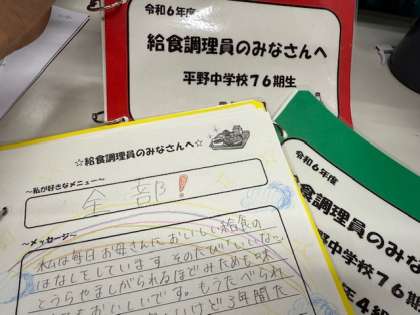 令和６年度
給食調理員のみなさんへ
平野中学校７６期生
令和６年度
給食調理員のみな
平野中学校７６
４組
☆給食調理員のみなさんへ☆
～私が好きなメニュー～
全部!
～メッセージ～
私は毎日お母さんに、おいしい給食の
はなしをしています。そのたびに「いいな～
とうらやましがられるほどみためも味
もおいしいです。もうたべられ
けど3年間